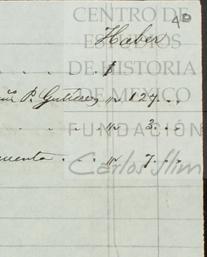 40
CENTRO DE
ESTUDIOS
Haber
DE HISTORIA
DE MEXICO
P. Gutierrez " 127 . .
FUNDACIÓN
. " 3 . . .
Carlos Slim
cuenta . . " 7 . . .